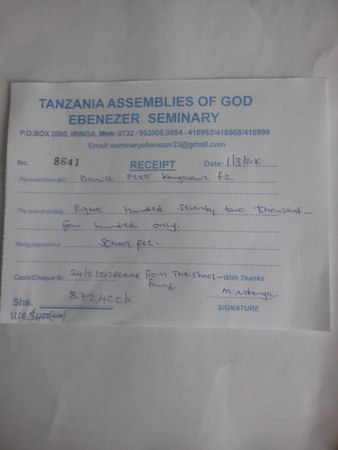 TANZANIA ASSEMBLIES OF GOD
EBENEZER SEMINARY
P.O.BOX 2080, IRINGA. Mob: 0732 - 952005,0654 - 418962/418968/418999
Email: seminaryebenezer23@gmail.com
No. 8641 RECEIPT Date: 1/3/2016
Received from M/S Peter
The sum of shilling Eight hundred seventy two thousand
four hundred only.
Being payment of School fee.
Cash/Cheque No 24/2/2016 from The School With Thanks
Fund.
Shs. 872,400/=
SIGNATURE